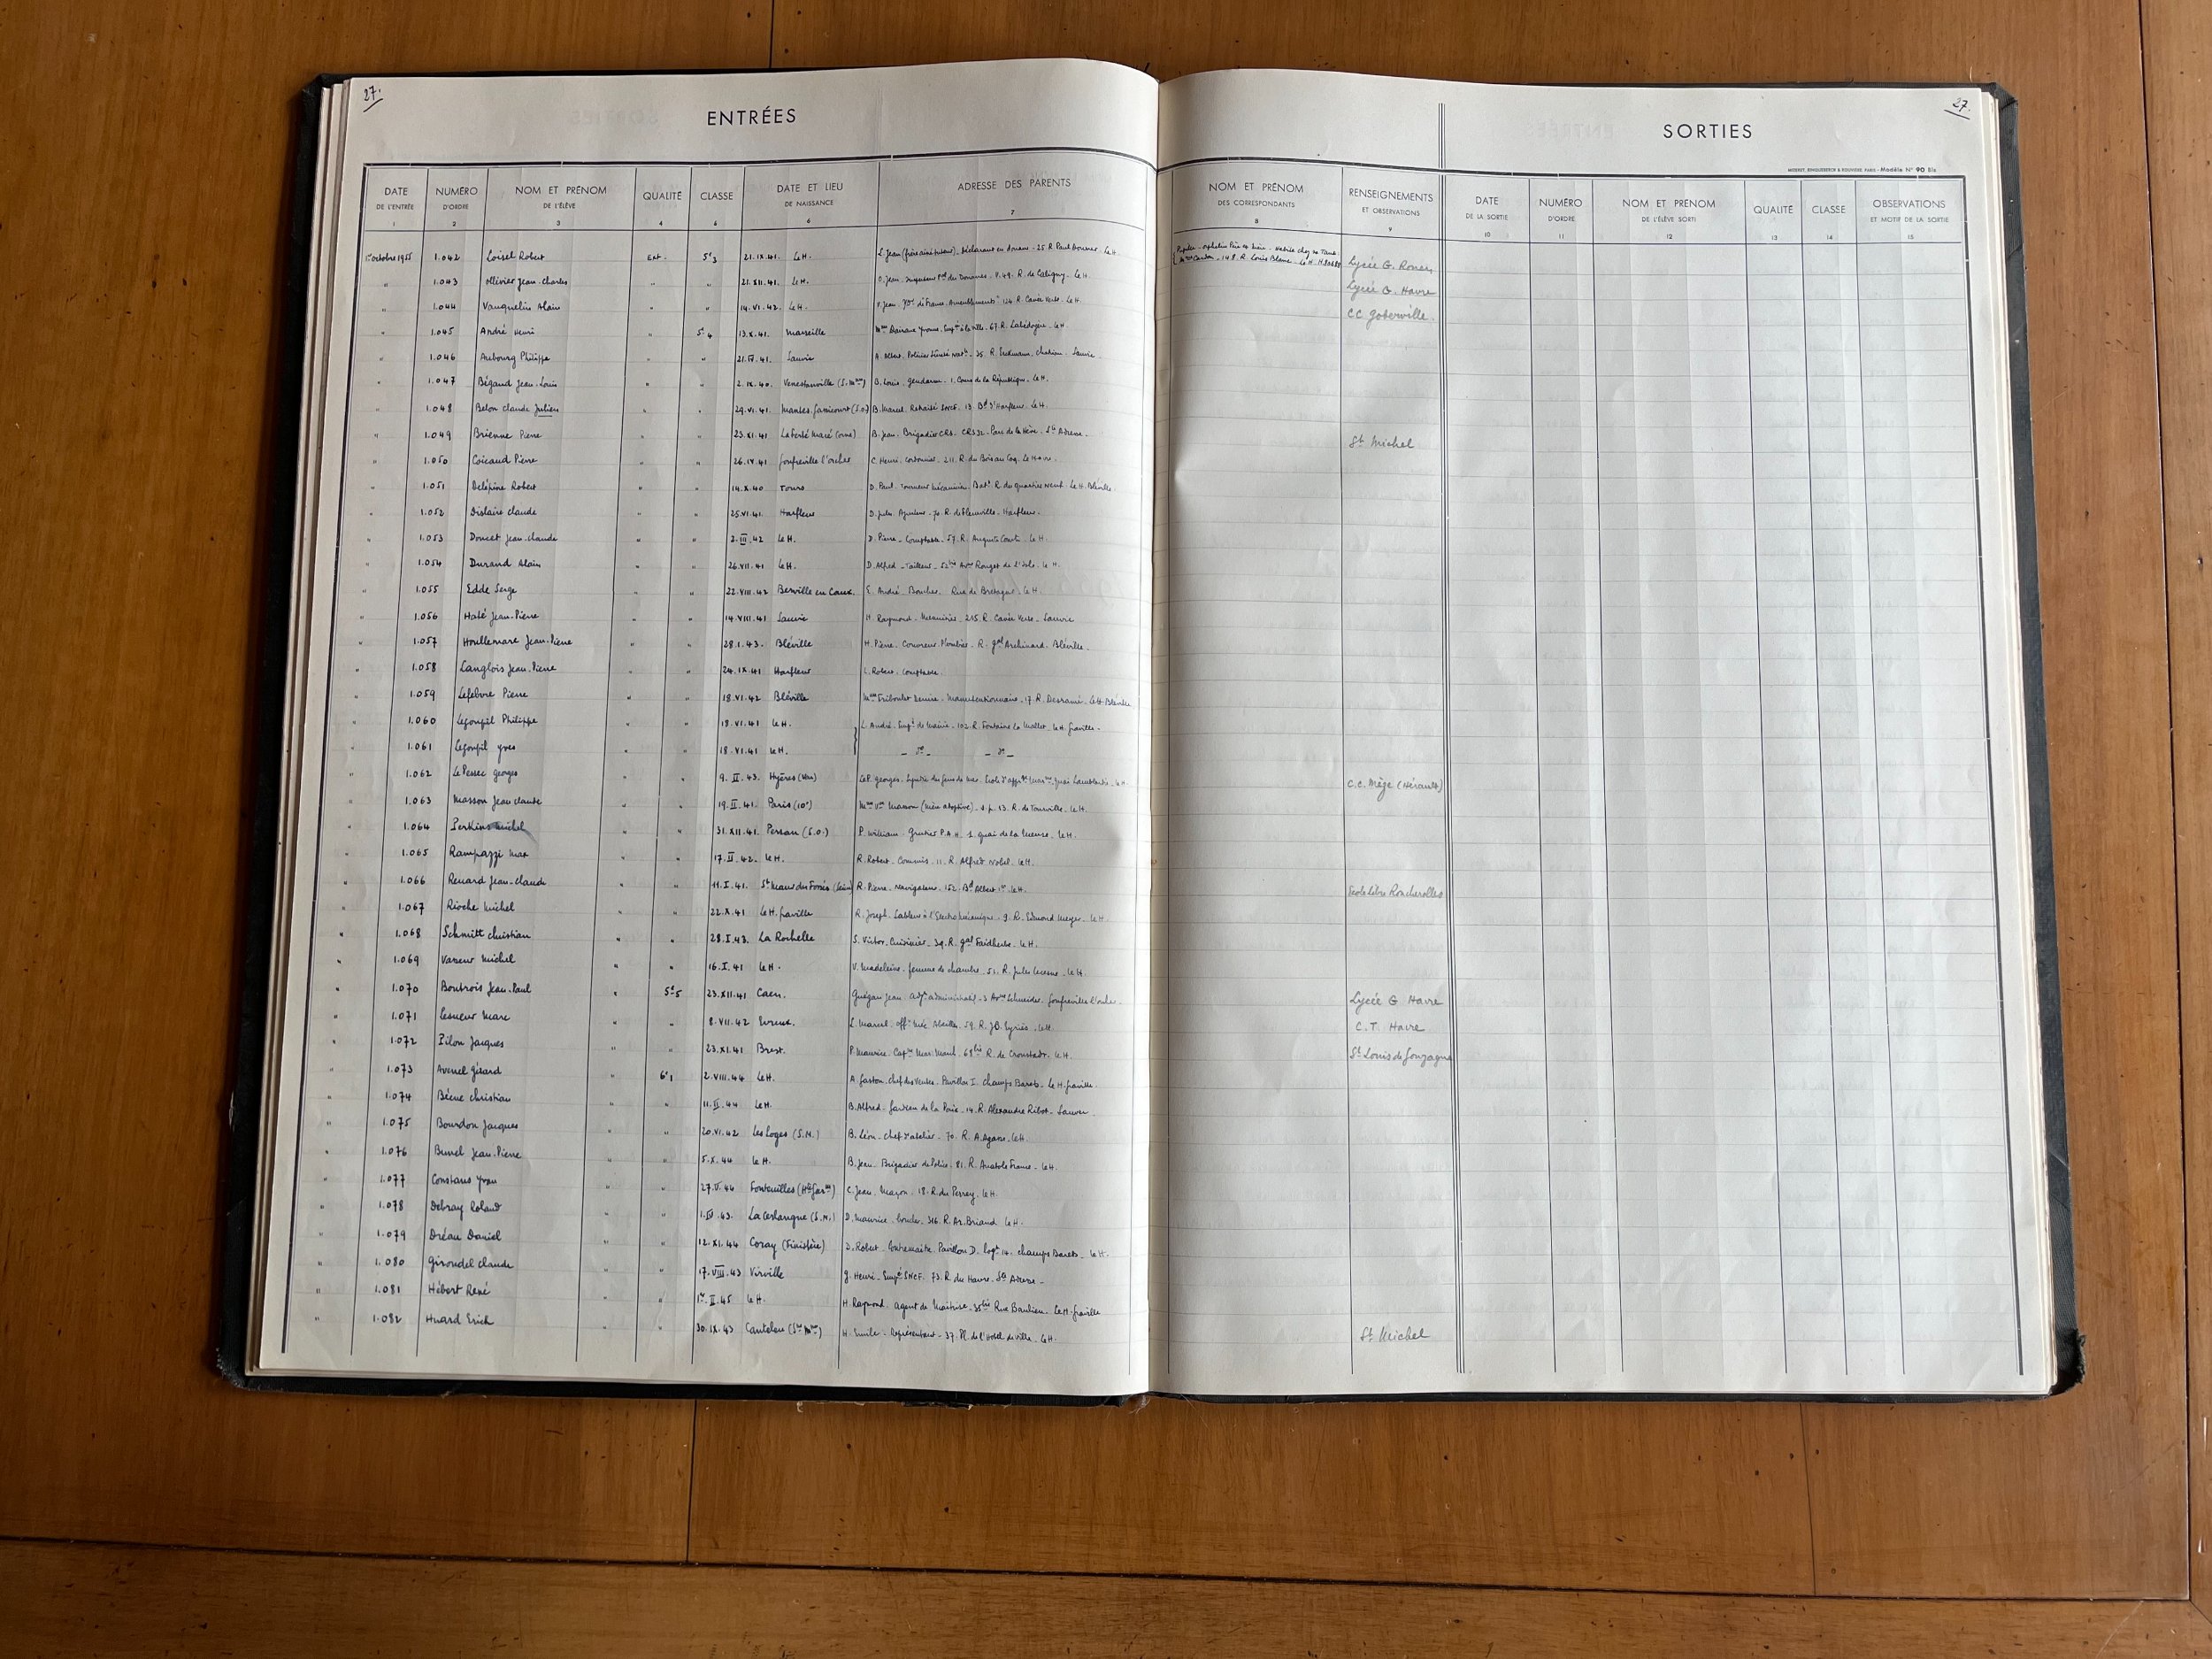 27.
ENTRÉES
DATE DE L'ENTRÉE 1 NUMÉRO D'ORDRE 2 NOM ET PRÉNOM DE L'ÉLÈVE 3 QUALITÉ 4 CLASSE 5 DATE ET LIEU DE NAISSANCE 6 ADRESSE DES PARENTS 7
27.
SORTIES
Modèle N° 90 Bis
NOM ET PRÉNOM DES CORRESPONDANTS 8 RENSEIGNEMENTS ET OBSERVATIONS 9 DATE DE LA SORTIE 10 NUMÉRO D'ORDRE 11 NOM ET PRÉNOM DE L'ÉLÈVE SORTI 12 QUALITÉ 13 CLASSE 14 OBSERVATIONS ET MOTIF DE LA SORTIE 15
1er octobre 1955 1.042 Loisel Robert Ext. 5e3 21.IX.41. Le H. L. Jean (frère aîné tuteur). Déclarant en douane - 25 R. Paul Doumer. Le H. Pupille - orphelin Père et Mère - Habite chez sa Tante - 148. R. Louis Blanc - Le H. Lycée G. Rouen
" 1.043 Ollivier Jean-Charles " " 21.XII.41. Le H. O. Jean. des Douanes - R. de Caligny - Le H. Lycée G. Havre
" 1.044 Vauquelin Alain " " 14.VI.42. Le H. V. Jean. 124 R. Cavée Verte. Le H. CC Goderville.
" 1.045 André Henri " 5e4 13.X.41. Marseille Mme Yvonne. Empée à la ville. 67. R. Labédoyère. Le H.
" 1.046 Aubourg Philippe " " 21.IV.41. Sanvic A. Albert. Policier Sûreté Natle - 35. R. Sanvic.
" 1.047 Bégaud Jean-Louis " " 2.IX.40. Venestanville (S.Mme) B. Louis. gendarme. 1. Cours de la République. Le H.
" 1.048 Belon Claude Julien " " 29.VI.41. Mantes. Gassicourt (S.O.) B. Marcel. Retraité SNCF. 13 Bd d'Harfleur. Le H.
" 1.049 Brienne Pierre " " 23.XI.41 La Ferté Macé (Orne) B. Jean. Brigadier CRS. CRS 32. Parc de la Hève. Ste Adresse. St Michel
" 1.050 Coicaud Pierre " " 26.IV.41 Gonfreville l'Orcher C. Henri. Cordonnier. 211. R. du Bois au Coq. Le Havre.
" 1.051 Delépine Robert " " 14.X.40 Tours D. Paul. Tourneur mécanicien. R. du quartier neuf. Le H. Bléville.
" 1.052 Dislaire Claude " " 25.VI.41. Harfleur D. Jules. Ajusteur. 70. R. de Harfleur.
" 1.053 Doucet Jean-Claude " " 2.III.42 Le H. D. Pierre - Comptable - 57. R. Auguste Comte. Le H.
" 1.054 Durand Alain " " 26.VII.41 Le H. D. Alfred - Tailleur - 52bis Ave Rouget de l'Isle. Le H.
" 1.055 Edde Serge " " 22.VIII.42 Berville en Caux. E. André. Boucher. Rue de Bretagne. Le H.
" 1.056 Haté Jean-Pierre " " 14.VIII.41 Sanvic H. Raymond. Menuisier. 215. R. Cavée Verte. Sanvic
" 1.057 Houllemare Jean-Pierre " " 28.I.43. Bléville H. Pierre. Couvreur Plombier. R. Gal Archinard. Bléville.
" 1.058 Langlois Jean-Pierre " " 24.IX.41 Harfleur L. Robert. Comptable.
" 1.059 Lefebvre Pierre " " 18.VI.42 Bléville Mme Triboulet Denise. Manutentionnaire. 17. R. Le H. Bléville
" 1.060 Legoupil Philippe " " 18.VI.41 Le H. L. André. Empé de Mairie. 102. R. Fontaine la Mallet. Le H. Graville.
" 1.061 Legoupil Yves " " 18.VI.41 Le H. - do - - do -
" 1.062 Le Pessec Georges " " 9.II.43. Hyères (Var) Le P. Georges. Syndic des gens de mer. Le H. C.C. Mèze (Hérault)
" 1.063 Masson Jean Claude " " 19.II.41. Paris (10e) Mme Vve Masson (mère adoptive). s.p. 13. R. de Tourville. Le H.
" 1.064 Perkins Michel " " 31.XII.41. Persan (S.O.) P. William. Grutier P.A.H. 1. quai de la Meuse. Le H.
" 1.065 Rampazzi Max " " 17.II.42. Le H. R. Robert. Commis. 11. R. Alfred Nobel. Le H.
" 1.066 Renard Jean-Claude " " 11.I.41. St Maur des Fossés (Seine) R. Pierre. Navigateur. 152. Bd Albert 1er. Le H. École libre Roncherolles
" 1.067 Rioche Michel " " 22.X.41 Le H. Graville R. Joseph. Cableur à l'Electro mécanique. 9. R. Edmond Meyer. Le H.
" 1.068 Schmitt Christian " " 28.I.43. La Rochelle S. Victor. Cuisinier. 39. R. Gal Faidherbe. Le H.
" 1.069 Vasseur Michel " " 16.I.41 Le H. V. Madeleine. femme de chambre. 51. R. Jules Lecesne. Le H.
" 1.070 Boutrois Jean-Paul " 5e5 23.XII.41 Caen. Guégan Jean. 3 Ave Schneider. Gonfreville l'Orcher. Lycée G Havre
" 1.071 Lesueur Marc " " 8.VII.42 Evreux. L. Marcel. 59. R. J.B. Eyriès. Le H. C.T. Havre
" 1.072 Pilon Jacques " " 23.XI.41 Brest. P. Maurice. Capne Mar. March. 68bis R. de Cronstadt. Le H. St Louis de Gonzague
" 1.073 Avenel Gérard " 6e1 2.VIII.44 Le H. A. Gaston. Chef des ventes. Pavillon I. Champs Barets. Le H. Graville.
" 1.074 Bécue Christian " " 11.II.44 Le H. B. Alfred. Gardien de la Paix. 14. R. Alexandre Ribot. Sanvic.
" 1.075 Bourdon Jacques " " 20.VI.42 Les Loges (S.M.) B. Léon. Chef d'atelier. 70. R. A. Agasse. Le H.
" 1.076 Burel Jean-Pierre " " 5.X.44 Le H. B. Jean. Brigadier de Police. 81. R. Anatole France. Le H.
" 1.077 Constans Yvan " " 27.V.44 Fontenilles (Hte Garne) C. Jean. Maçon. 18. R. du Perrey. Le H.
" 1.078 Debray Roland " " 1.IV.43. La Cerlangue (S.M.) D. Maurice. 316. R. Ar. Briand Le H.
" 1.079 Dréau Daniel " " 12.XI.44 Coray (Finistère) D. Robert. Contremaître. Pavillon D. Logt 14. Champs Barets. Le H.
" 1.080 Girondel Claude " " 17.VIII.43 Virville G. Henri. Empé SNCF. 73. R. du Havre. Ste Adresse.
" 1.081 Hébert René " " 1er.II.45 Le H. H. Raymond. Agent de Maîtrise. 35bis Rue Baulieu. Le H. Graville
" 1.082 Huard Erich " " 30.IX.43 Canteleu (Sne Mme) H. Emile. Représentant. 37. Pl. de l'Hotel de ville. Le H. St Michel